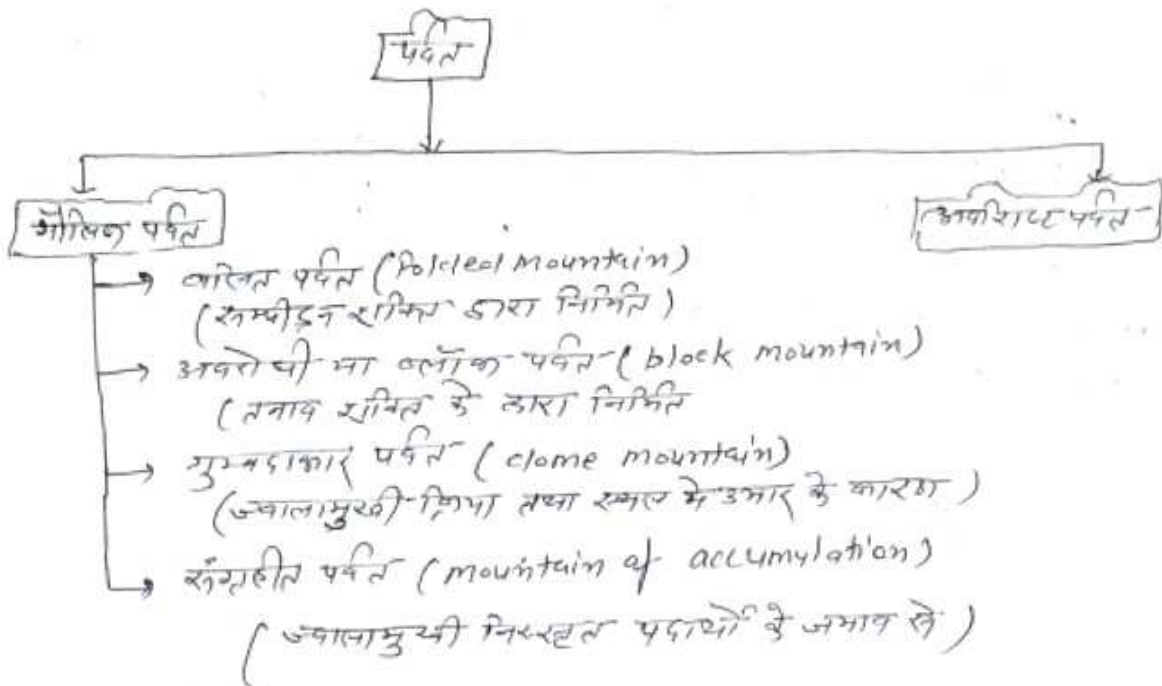 पर्वत
मौलिक पर्वत
अवशिष्ट पर्वत
वलित पर्वत (folded mountain)
(सम्पीड़न शक्ति द्वारा निर्मित)
अवरोधी या ब्लॉक पर्वत (block mountain)
(तनाव शक्ति के द्वारा निर्मित
गुम्बदाकार पर्वत (dome mountain)
(ज्वालामुखी क्रिया तथा स्थल में उभार के कारण)
संग्रहीत पर्वत (mountain of accumulation)
(ज्वालामुखी निस्सृत पदार्थों के जमाव से)